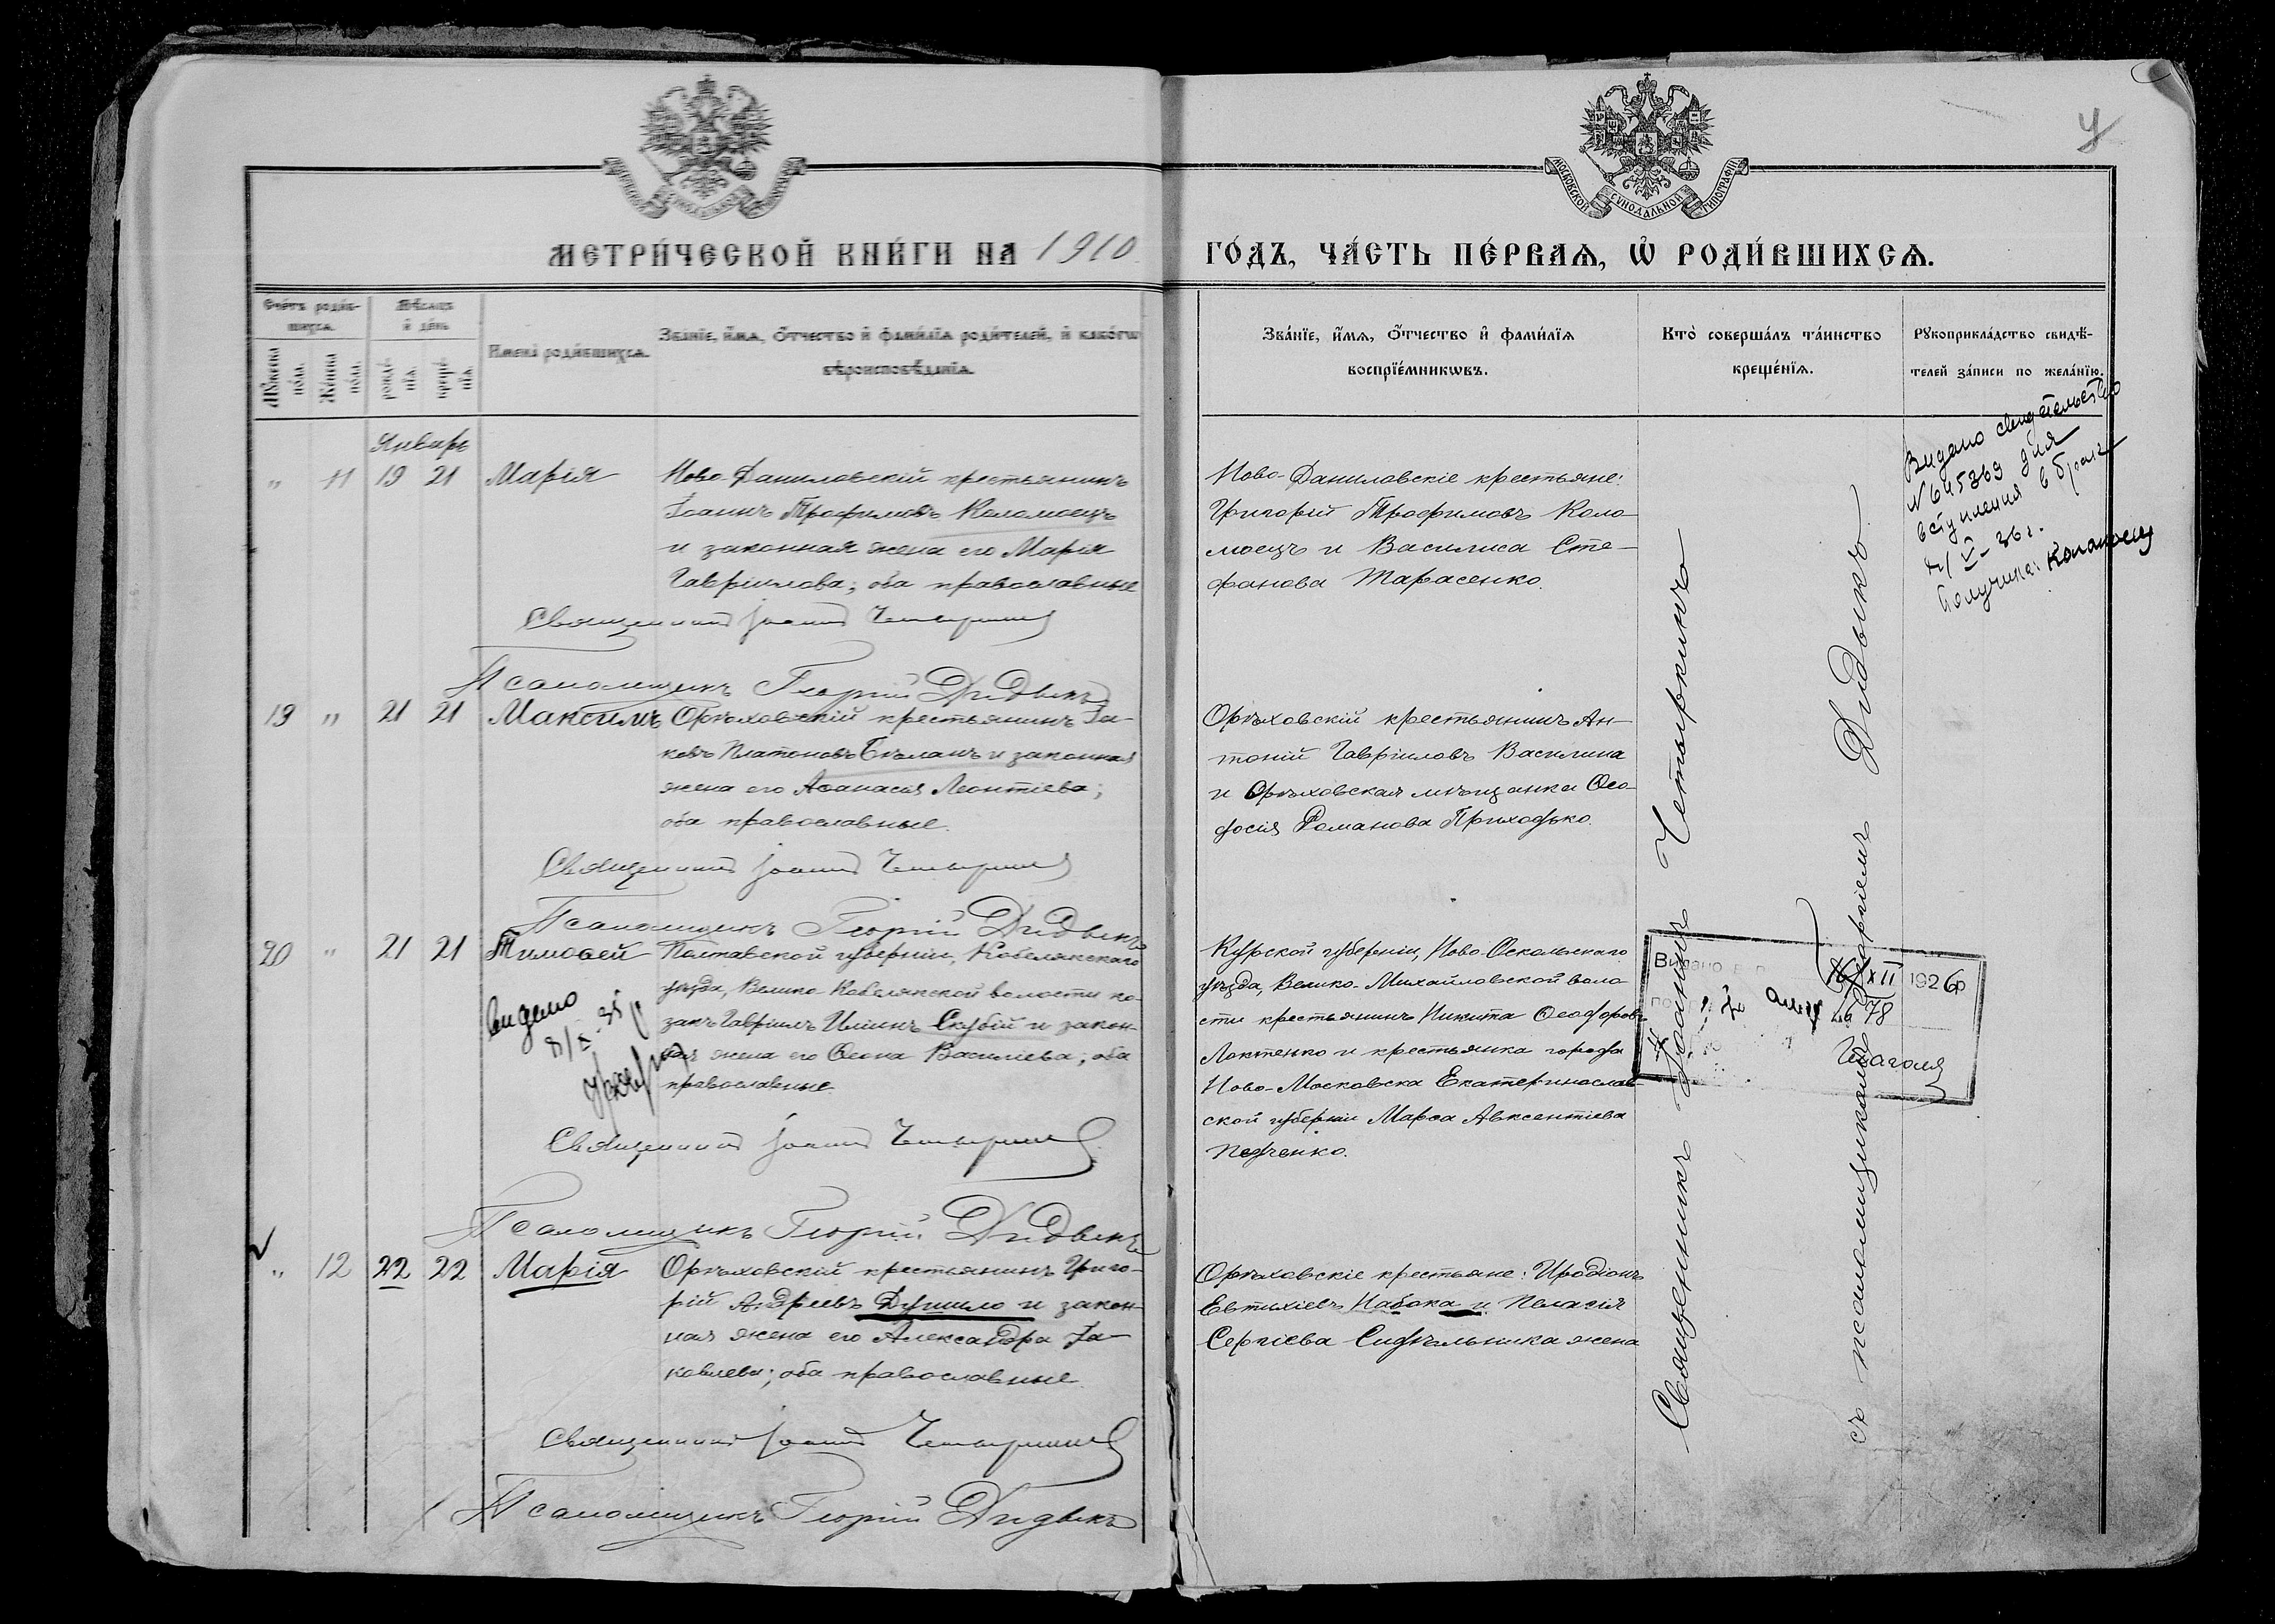 МОСКОВСКОЙ СУНОДАЛЬНОЙ ТИПОГРАФІИ
4
МЕТРИ́ЧЕСКОЙ КНИ́ГИ НА 1910
ГО́ДЪ, ЧА́СТЬ ПЕ́РВАѦ, Ѡ҆ РОДИ́ВШИХСѦ.
Сче́тъ роди́в-
шихсѧ.
Мѣ́сѧцъ
и҆ де́нь
Мꙋ́жеска
по́ла.
Же́нска
по́ла.
рожде́-
нїѧ.
креще́-
нїѧ.
И҆мена̀ роди́вшихсѧ.
Зва́нїе, и҆́мѧ, ѻ҆́тчество и҆ фами́лїѧ роди́телей, и҆ како́гѡ
вѣроисповѣ́данїѧ.
Зва́нїе, и҆́мѧ, ѻ҆́тчество и҆ фами́лїѧ
воспрїе́мникѡвъ.
Кто̀ соверша́лъ та́инство
креще́нїѧ.
Рꙋкоприкла́дство свидѣ́-
телей за́писи по жела́нїю.
Январь
" 11 19 21 Марія
Ново-Даниловскій крестьянинъ
Іоаннъ Трофимовъ Коломоецъ
и законная жена его Марія
Гавріилова; оба православные
Священникъ Іоаннъ Четыркинъ
Псаломщикъ Георгій Дидыкъ
Ново-Даниловскіе крестьяне:
Григорій Трофимовъ Коло-
моецъ и Василиса Сте-
фанова Тарасенко.
Видано свидетельство
N 645369 для
вступления в брак
V - 36 г.
Получила: Коломоец
19 " 21 21 Максимъ
Орѣховскій крестьянинъ Іа-
ковъ Платоновъ Бѣланъ и законная
жена его Аѳанасія Леонтіева;
оба православные.
Священникъ Іоаннъ Четыркинъ
Псаломщикъ Георгій Дидыкъ
Орѣховскій крестьянинъ Ан-
тоній Гавріиловъ Василина
и Орѣховская мѣщанка Ѳео-
досія Романова Приходько.
20 " 21 21 Тимоѳей
Полтавской губерніи, Кобелякскаго
уѣзда, Велико-Кобелякской волости ко-
закъ Гавріилъ Иліинъ Скубій и закон-
ная жена его Ѳеона Василіева; оба
православные.
видано
Священникъ Іоаннъ Четыркинъ
Псаломщикъ Георгій Дидыкъ
Курской губерніи, Ново-Оскольскаго
уѣзда, Велико-Михайловской воло
сти крестьянинъ Никита Ѳеодоровъ
Локтенко и крестьянка города
Ново-Московска Екатеринослав-
ской губерніи Марѳа Авксентіева
Педченко.
Видано
XII 1926 р
за 78
" 12 22 22 Марія
Орѣховскій крестьянинъ Григо-
рій Андреевъ Душило и закон-
ная жена его Александра Іа-
ковлева; оба православные
Священникъ Іоаннъ Четыркинъ
Псаломщикъ Георгій Дидыкъ
Орѣховскіе крестьяне: Иродіонъ
Евтихіевъ Набока и Пелагія
Сергіева Сидѣльника жена
Священникъ Іоаннъ Четыркинъ
съ псаломщикомъ Георгіемъ Дидыкъ.